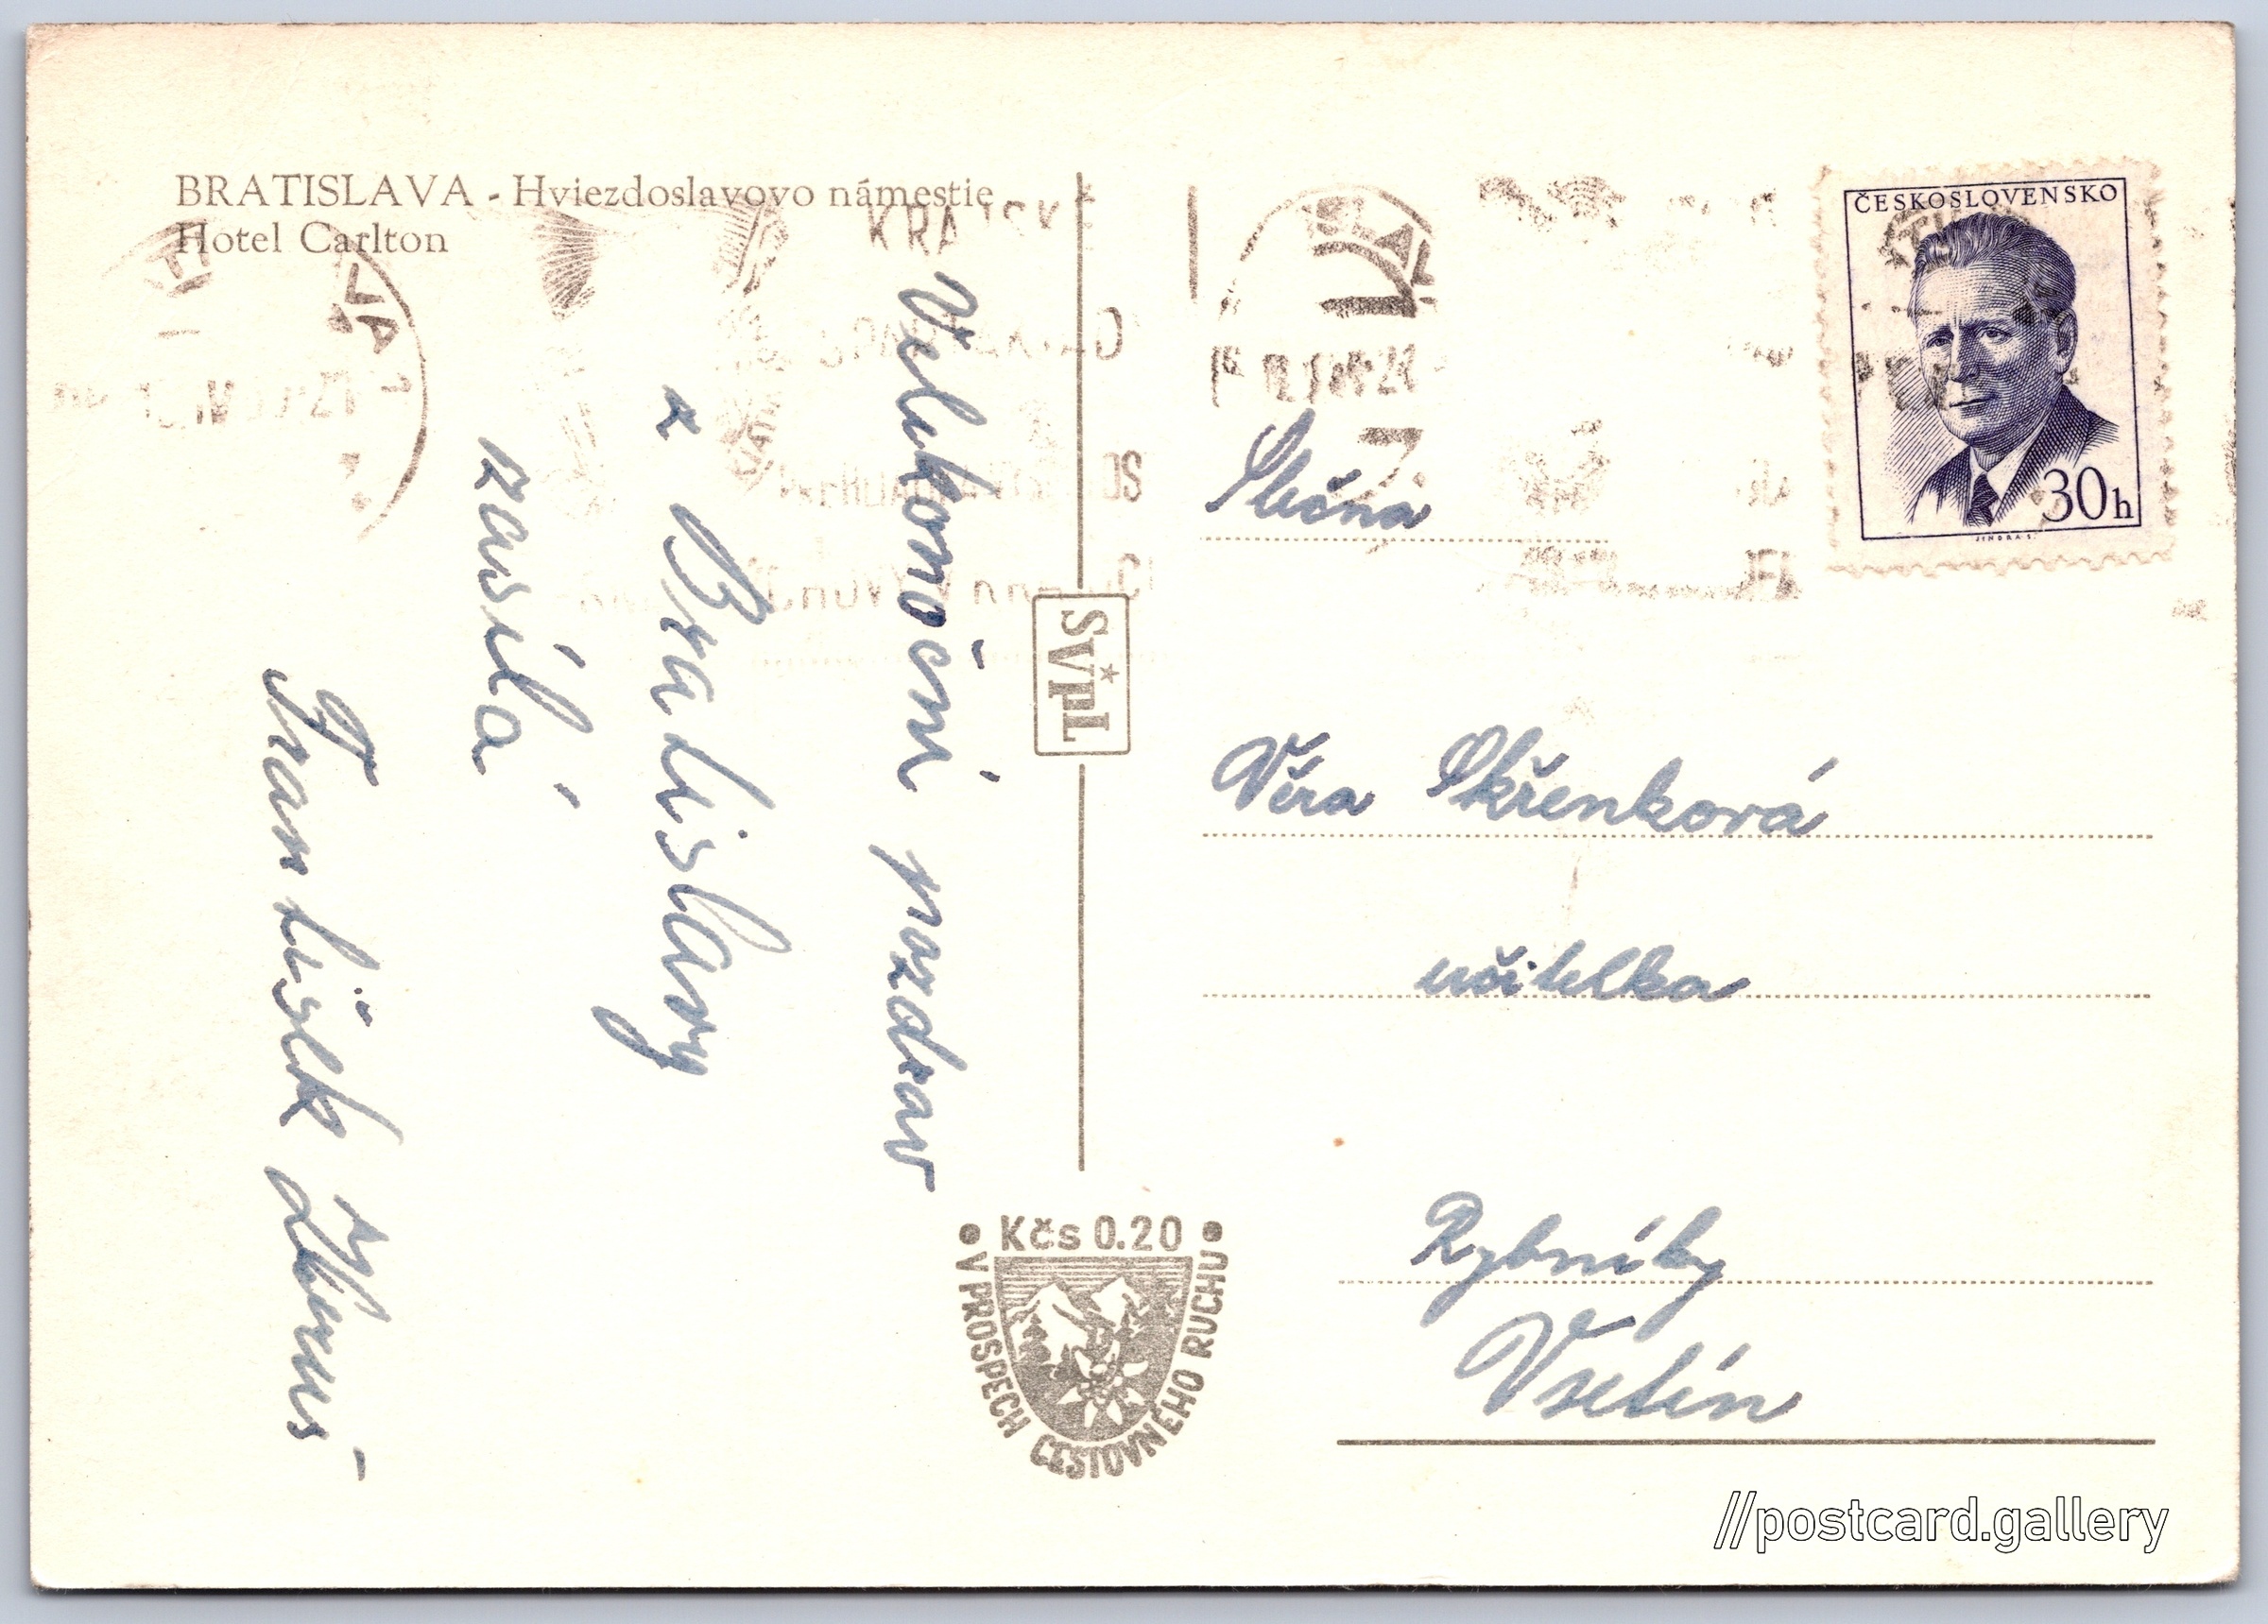 BRATISLAVA - Hviezdoslavovo námestie
Hotel Carlton
Velikonoční pozdrav
z Bratislavy
zasílá
František
SVpL
Kčs 0.20
V PROSPECH CESTOVNÉHO RUCHU
ČESKOSLOVENSKO
30h
JINDRA S.
Slečna
Věra Skřenková
učitelka
Rybníky
Vsetín
//postcard.gallery